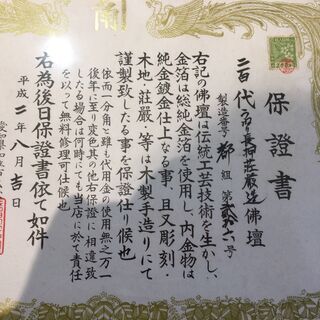 保證書
三百代 つり長押荘厳造 佛壇
製造番号 都組 第 号
右記の佛壇は伝統工芸技術を生かし、
金箔は総純金箔を使用し、内金物は
純金鍍金仕上なる事、且又彫刻・
木地・荘厳・等は木製手造りにて
謹製致したる事を保證仕り候也
依而一分角と雖も代用金の使用無之万一
後年に至り変色其の他右保證に相違致
したる場合は何時にても当店に於て責任
を以って無料修理可仕候也
右為後日保證書依て如件
平成二年八月吉日